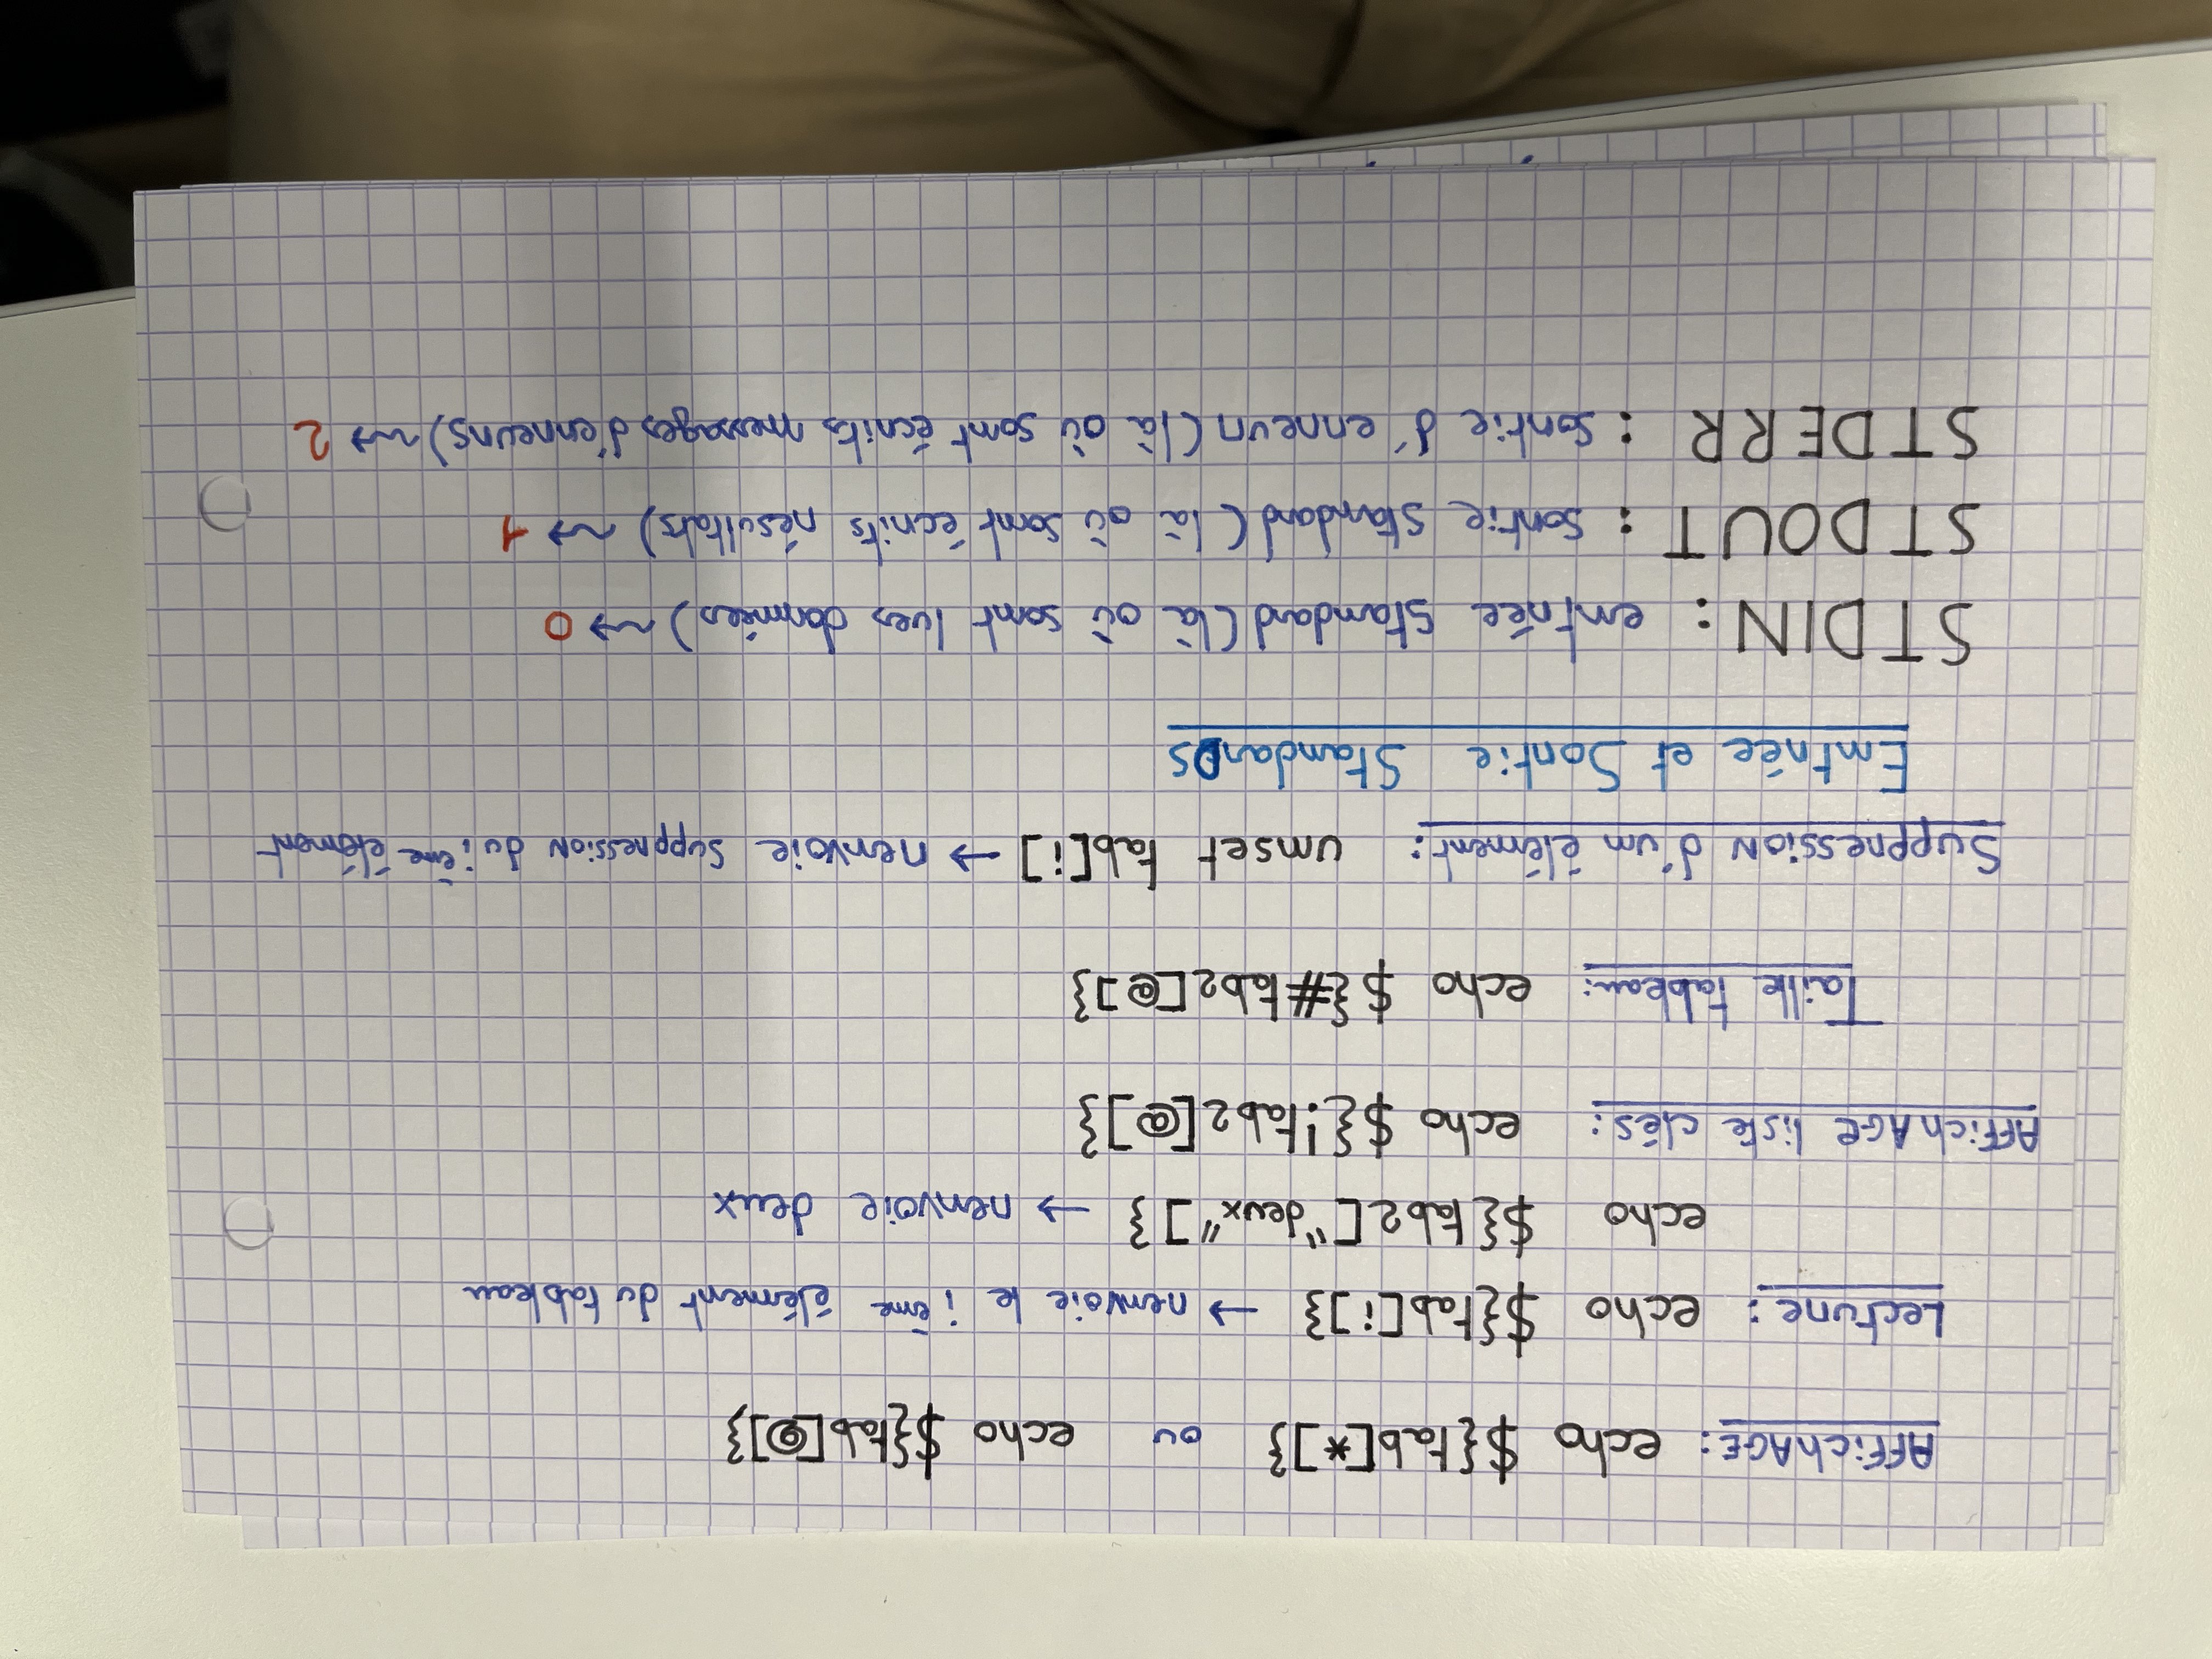 Affichage: echo ${tab[*]} ou echo ${tab[@]}
Lecture: echo ${tab[i]} → renvoie le ième élément du tableau
echo ${tab2["deux"]} → renvoie deux
Affichage liste clés: echo ${!tab2[@]}
Taille tableau: echo ${#tab2[@]}
Suppression d'un élément: unset tab[i] → renvoie suppression du ième élément
Entrée et Sortie Standards
STDIN: entrée standard (là où sont lues données) ⇝ 0
STDOUT: sortie standard (là où sont écrits résultats) ⇝ 1
STDERR: sortie d'erreur (là où sont écrits messages d'erreurs) ⇝ 2